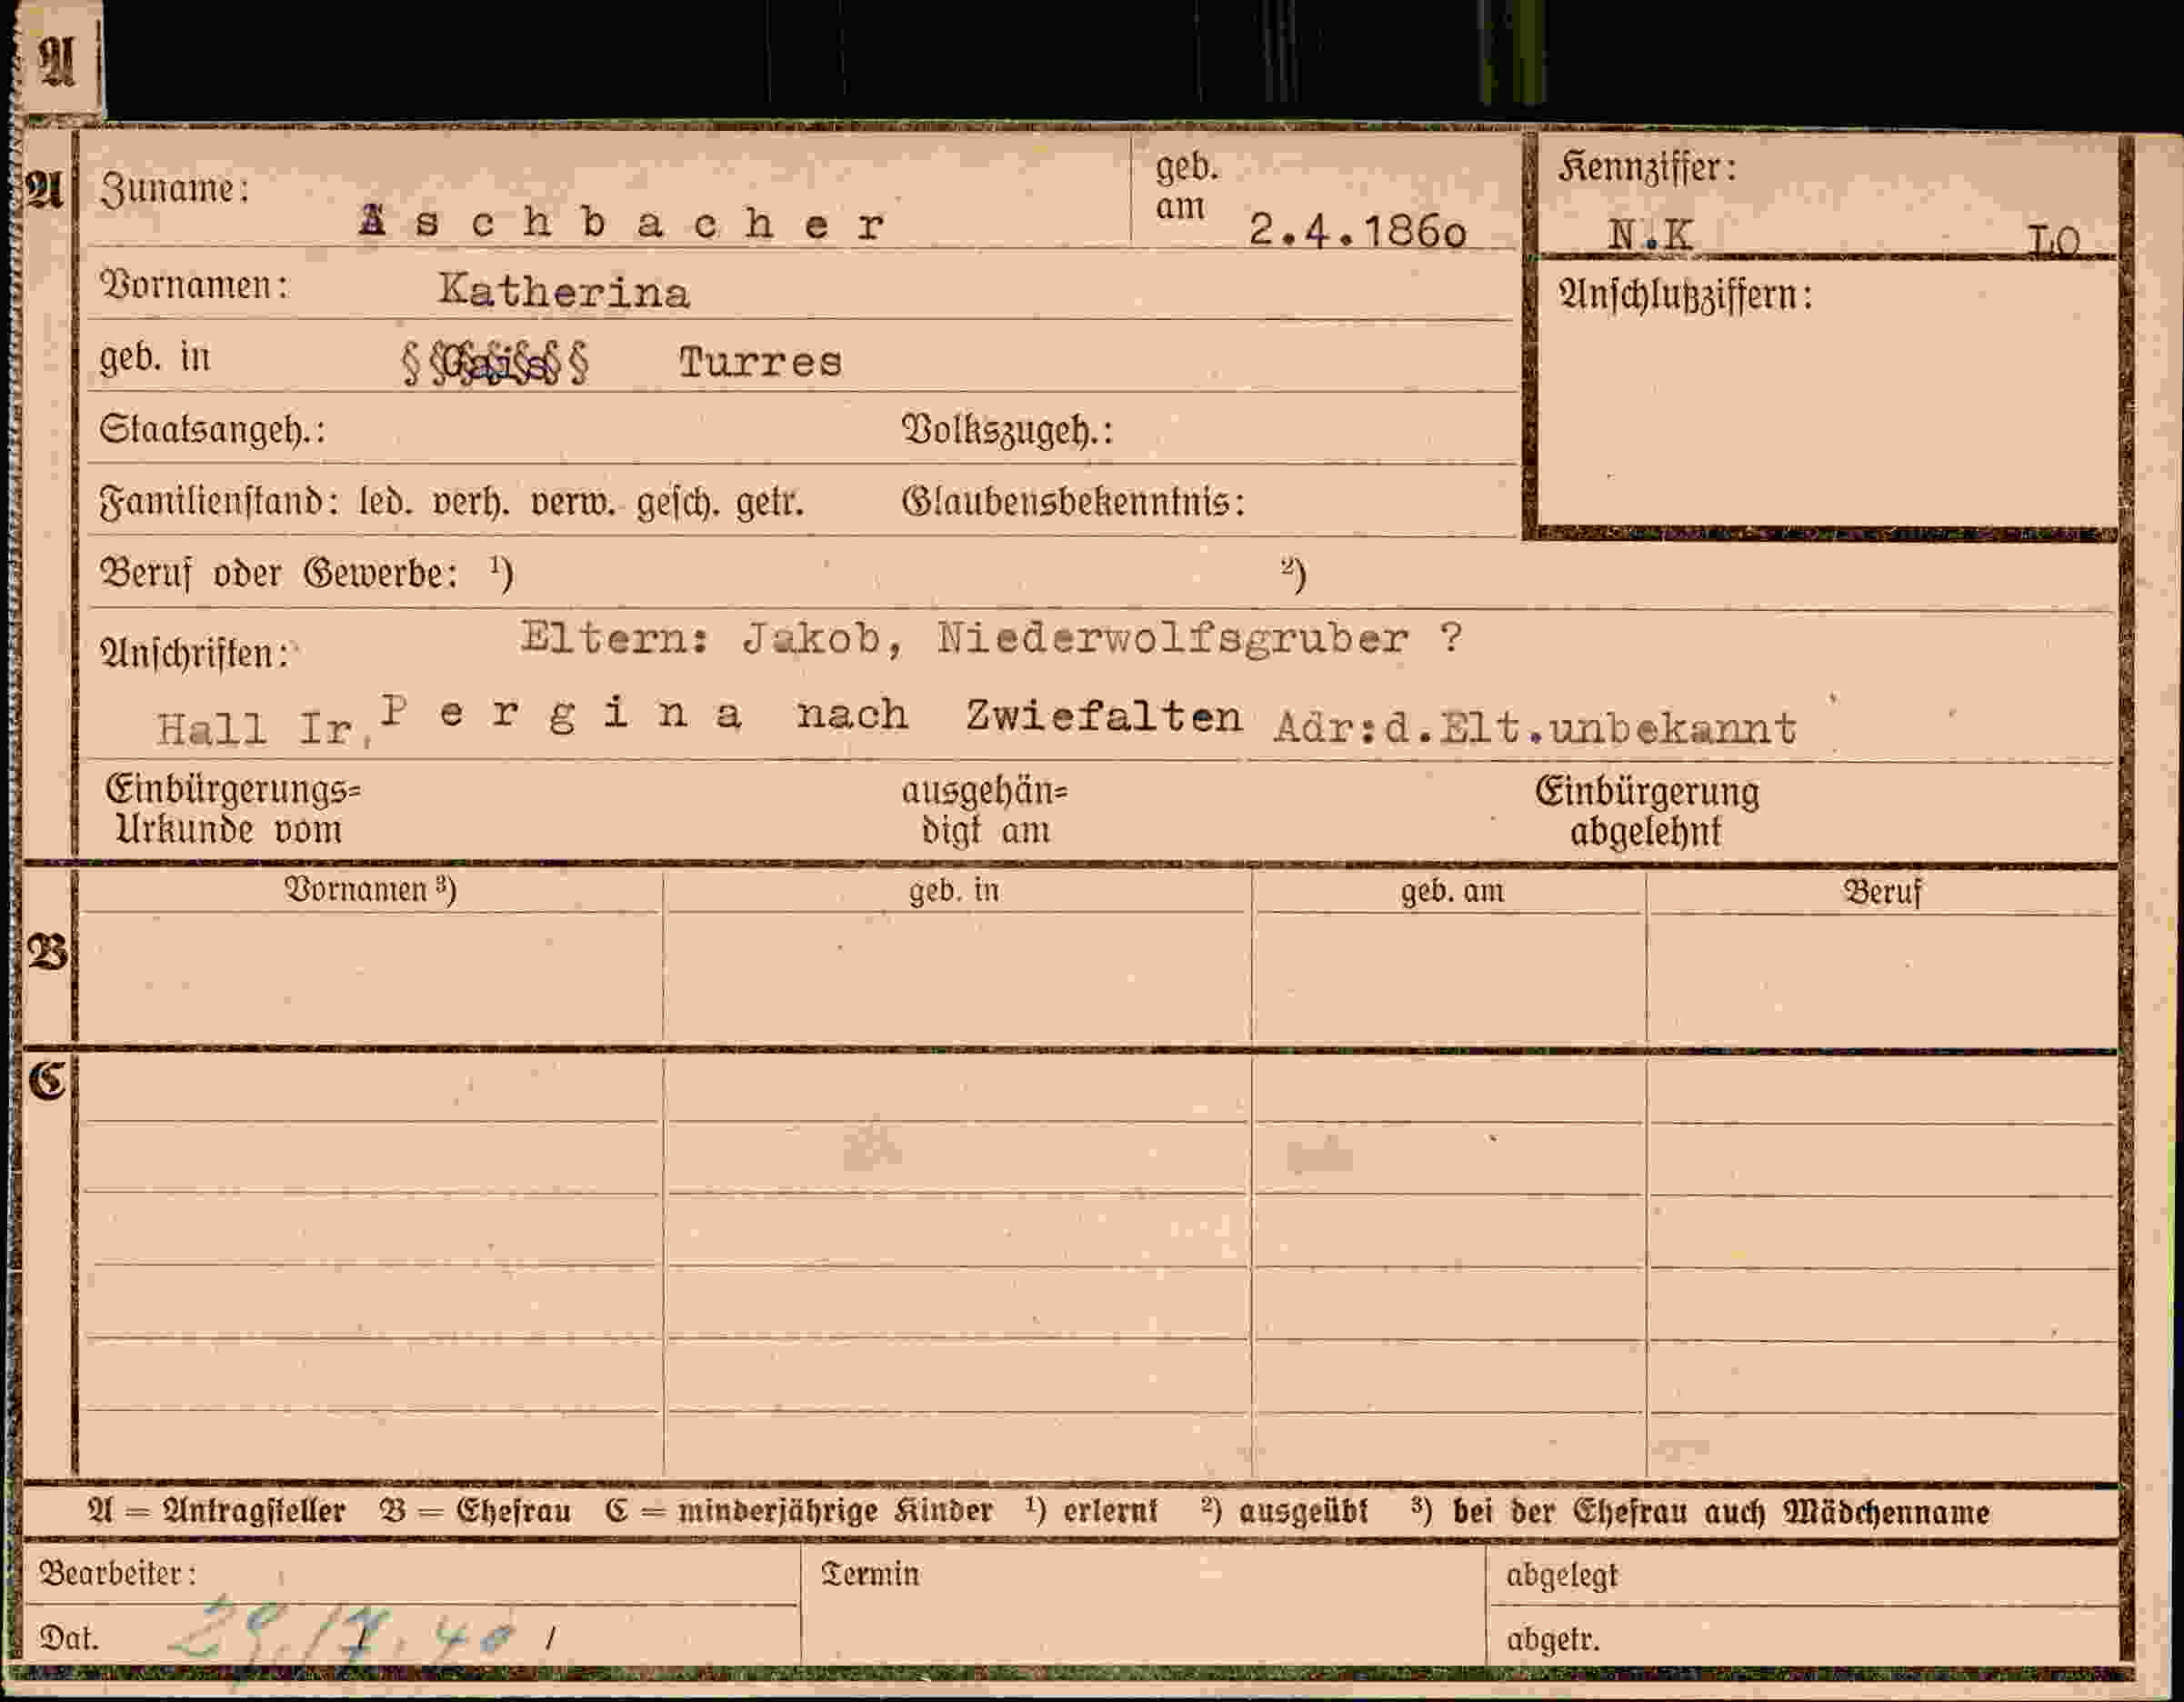 A
A Zuname: Aschbacher geb. am 2.4.1860 Kennziffer: N.K LO
Vornamen: Katherina Anschlußziffern:
geb. in §§Gais§§ Turres
Staatsangeh.: Volkszugeh.:
Familienstand: led. verh. verw. gesch. getr. Glaubensbekenntnis:
Beruf oder Gewerbe: 1) 2)
Anschriften: Eltern: Jakob, Niederwolfsgruber ?
Hall Ir, Pergina nach Zwiefalten Adr:d.Elt.unbekannt
Einbürgerungs= ausgehän= Einbürgerung
Urkunde vom digt am abgelehnt
Vornamen 3) geb. in geb. am Beruf
B
C
A = Antragsteller B = Ehefrau C = minderjährige Kinder 1) erlernt 2) ausgeübt 3) bei der Ehefrau auch Mädchenname
Bearbeiter: Termin abgelegt
Dat. 29./7.40 / abgetr.